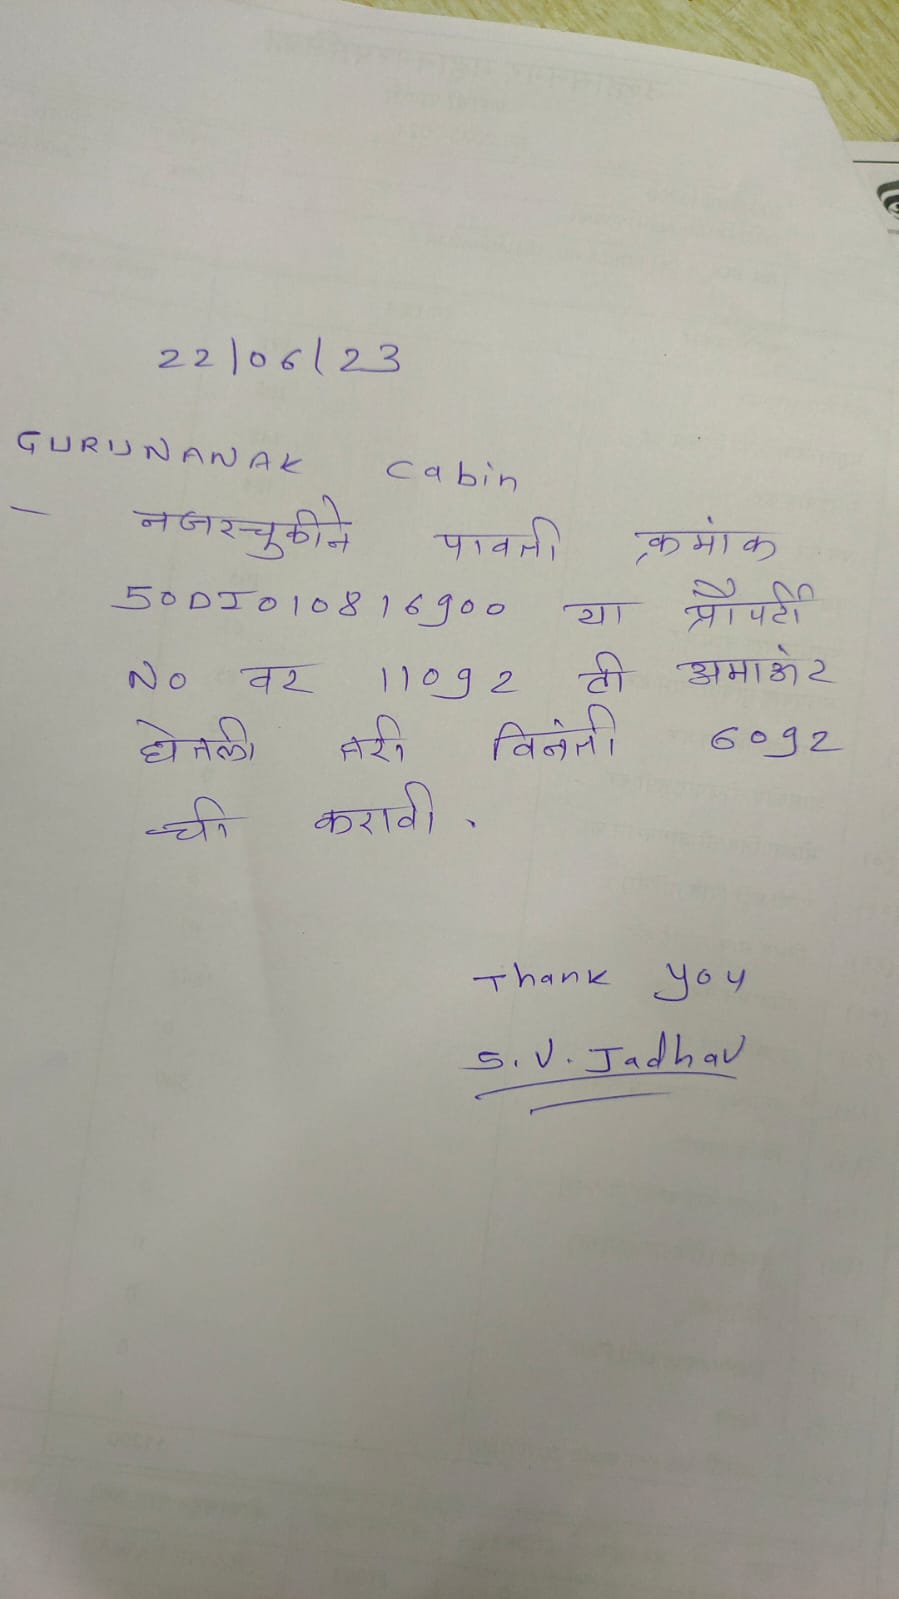 22/06/23
GURUNANAK cabin
- नजरचुकीने पावती क्रमांक
50DI010816900 या प्रौपर्टी
NO वर 11092 ही अमाऊंट
घेतली तरी विनंती 6092
ची करावी.
Thank you
S.V. Jadhav